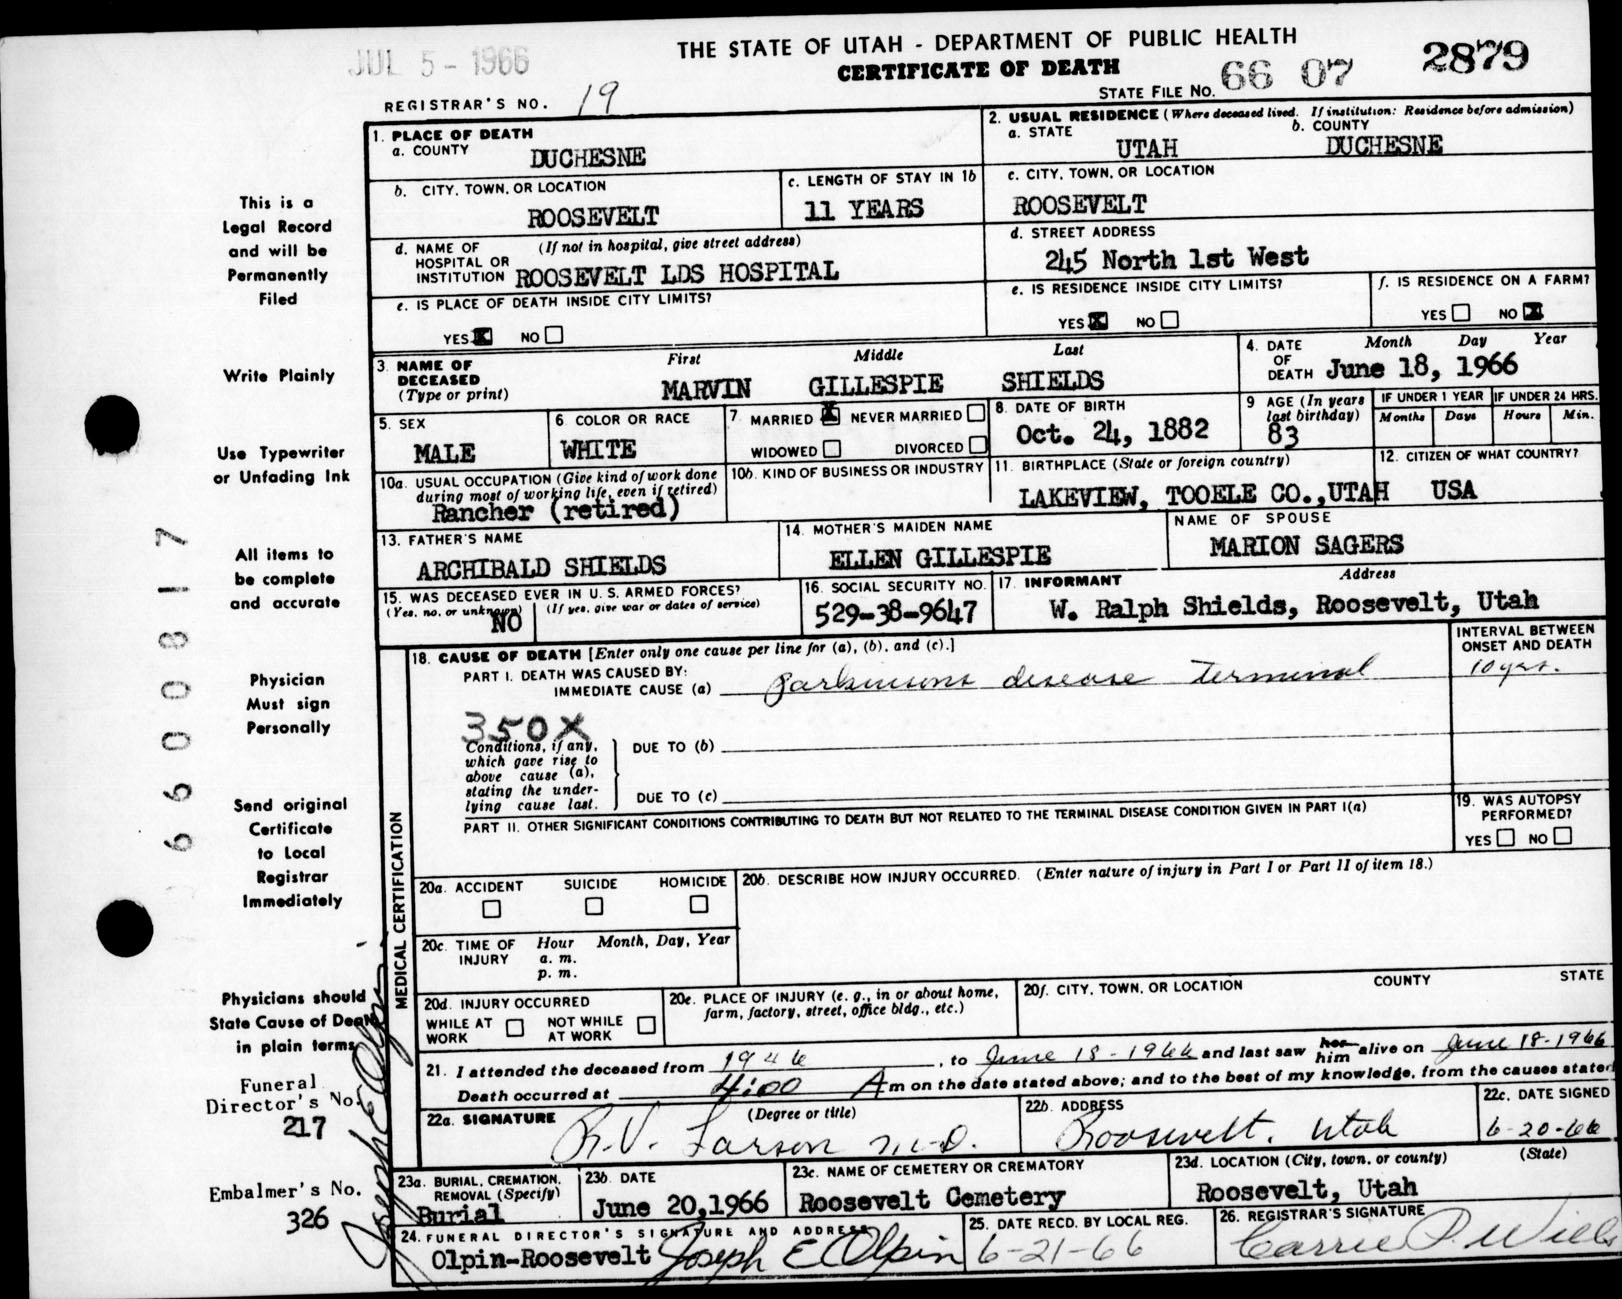 JUL 5 - 1966
THE STATE OF UTAH - DEPARTMENT OF PUBLIC HEALTH
CERTIFICATE OF DEATH
STATE FILE NO. 66 07 2879
REGISTRAR'S NO. 19
1. PLACE OF DEATH
a. COUNTY DUCHESNE
2. USUAL RESIDENCE (Where deceased lived. If institution: Residence before admission)
a. STATE UTAH b. COUNTY DUCHESNE
b. CITY, TOWN, OR LOCATION ROOSEVELT
c. LENGTH OF STAY IN 1b 11 YEARS
c. CITY, TOWN, OR LOCATION ROOSEVELT
d. NAME OF HOSPITAL OR INSTITUTION (If not in hospital, give street address) ROOSEVELT LDS HOSPITAL
d. STREET ADDRESS 245 North 1st West
e. IS PLACE OF DEATH INSIDE CITY LIMITS?
YES X NO
e. IS RESIDENCE INSIDE CITY LIMITS?
YES X NO
f. IS RESIDENCE ON A FARM?
YES NO X
3. NAME OF DECEASED (Type or print)
First Middle Last
MARVIN GILLESPIE SHIELDS
4. DATE OF DEATH Month Day Year
June 18, 1966
5. SEX MALE
6 COLOR OR RACE WHITE
7 MARRIED X NEVER MARRIED
WIDOWED DIVORCED
8. DATE OF BIRTH Oct. 24, 1882
9 AGE (In years last birthday) 83
IF UNDER 1 YEAR Months Days
IF UNDER 24 HRS. Hours Min.
10a. USUAL OCCUPATION (Give kind of work done during most of working life, even if retired)
Rancher (retired)
10b. KIND OF BUSINESS OR INDUSTRY
11. BIRTHPLACE (State or foreign country)
LAKEVIEW, TOOELE CO.,UTAH
12. CITIZEN OF WHAT COUNTRY?
USA
13. FATHER'S NAME
ARCHIBALD SHIELDS
14. MOTHER'S MAIDEN NAME
ELLEN GILLESPIE
NAME OF SPOUSE
MARION SAGERS
15. WAS DECEASED EVER IN U.S. ARMED FORCES?
(Yes, no, or unknown) (If yes, give war or dates of service)
NO
16. SOCIAL SECURITY NO.
529-38-9647
17. INFORMANT Address
W. Ralph Shields, Roosevelt, Utah
MEDICAL CERTIFICATION
18. CAUSE OF DEATH [Enter only one cause per line for (a), (b), and (c).]
INTERVAL BETWEEN ONSET AND DEATH
PART I. DEATH WAS CAUSED BY:
IMMEDIATE CAUSE (a) Parkinsons disease terminal 10 yrs.
350X
Conditions, if any, which gave rise to above cause (a), stating the underlying cause last.
DUE TO (b)
DUE TO (c)
PART II. OTHER SIGNIFICANT CONDITIONS CONTRIBUTING TO DEATH BUT NOT RELATED TO THE TERMINAL DISEASE CONDITION GIVEN IN PART I(a)
19. WAS AUTOPSY PERFORMED?
YES NO
20a. ACCIDENT SUICIDE HOMICIDE
20b. DESCRIBE HOW INJURY OCCURRED. (Enter nature of injury in Part I or Part II of item 18.)
20c. TIME OF INJURY Hour Month, Day, Year
a. m.
p. m.
20d. INJURY OCCURRED
WHILE AT WORK NOT WHILE AT WORK
20e. PLACE OF INJURY (e. g., in or about home, farm, factory, street, office bldg., etc.)
20f. CITY, TOWN, OR LOCATION COUNTY STATE
21. I attended the deceased from 1946, to June 18-1966 and last saw her him alive on June 18-1966
Death occurred at 4:00 Am on the date stated above; and to the best of my knowledge, from the causes stated
22a. SIGNATURE (Degree or title)
R.V. Larson M.D.
22b. ADDRESS
Roosevelt, Utah
22c. DATE SIGNED
6-20-66
23a. BURIAL, CREMATION, REMOVAL (Specify)
Burial
23b. DATE
June 20,1966
23c. NAME OF CEMETERY OR CREMATORY
Roosevelt Cemetery
23d. LOCATION (City, town, or county) (State)
Roosevelt, Utah
24. FUNERAL DIRECTOR'S SIGNATURE AND ADDRESS
Olpin-Roosevelt Joseph E Olpin
25. DATE RECD. BY LOCAL REG.
6-21-66
26. REGISTRAR'S SIGNATURE
Carrie P. Wills
This is a
Legal Record
and will be
Permanently
Filed
Write Plainly
Use Typewriter
or Unfading Ink
All items to
be complete
and accurate
Physician
Must sign
Personally
Send original
Certificate
to Local
Registrar
Immediately
Physicians should
State Cause of Death
in plain terms
Funeral
Director's No.
217
Embalmer's No.
326
Joseph E Olpin
6600817